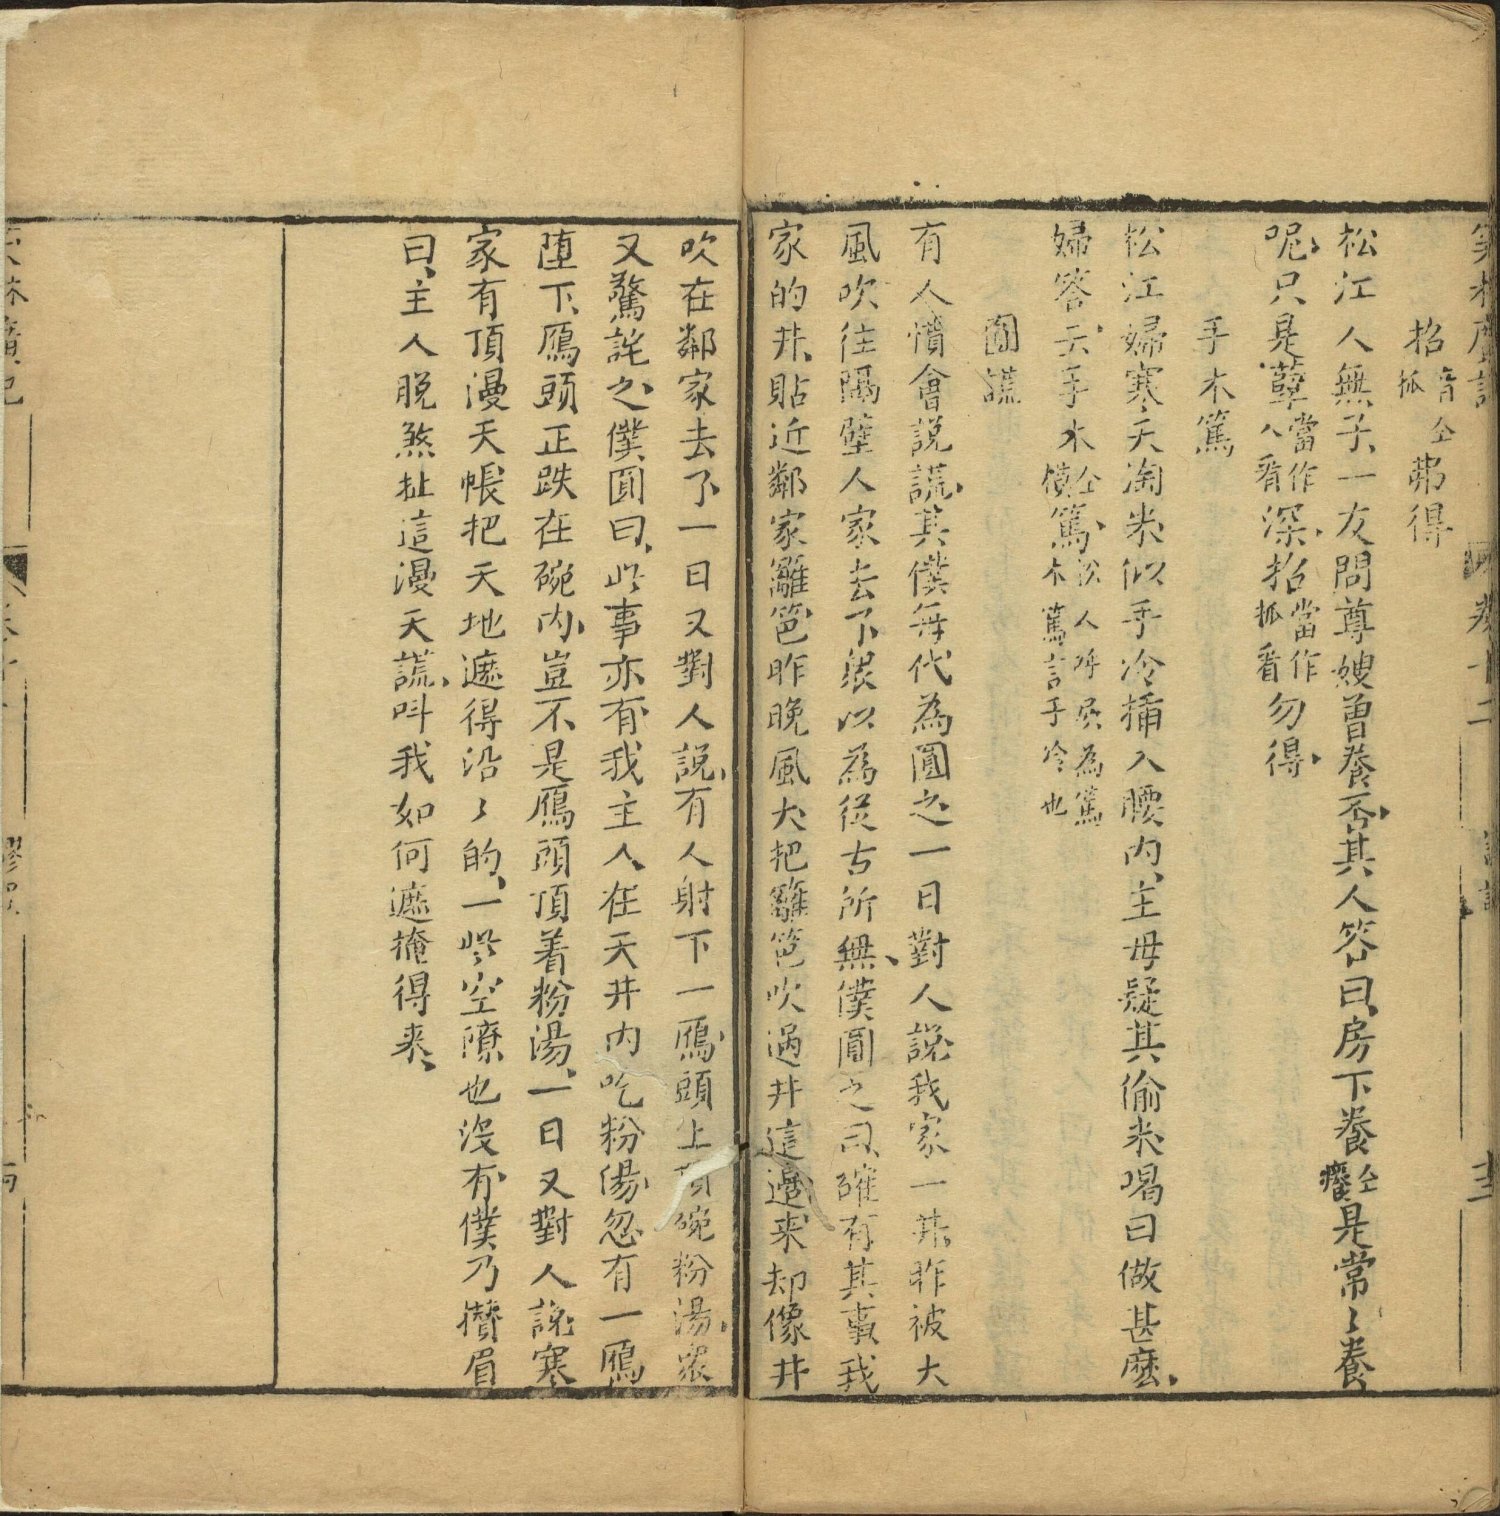 笑林廣記
卷十二
謬誤
十三
招音孤仝弗得
松江人無子一友問尊嫂曾養否其人答曰房下養仝癢是常〻養
呢只是孽當作人看深招當作孤看勿得
手木篤
松江婦寒天淘米似手冷揷入腰內主母疑其偷米喝曰做甚麽
婦答云手木仝懊篤松人呼吳為篤木篤言手冷也
圓謊
有人慣會說謊其僕每代為圓之一日對人說我家一井昨被大
風吹往隔壁人家去了衆以為從古所無僕圓之曰確有其事我
家的井貼近鄰家籬笆昨晚風大把籬笆吹過井這邊来却像井
吹在鄰家去了一日又對人說有人射下一鴈頭上頂碗粉湯衆
又驚詫之僕圓曰此事亦有我主人在天井內吃粉湯忽有一鴈
墮下鴈頭正跌在碗內豈不是鴈頭頂着粉湯一日又對人說寒
家有頂漫天帳把天地遮得沿〻的一些空隙也沒有僕乃攢眉
曰主人脫煞扯這漫天謊呌我如何遮掩得来